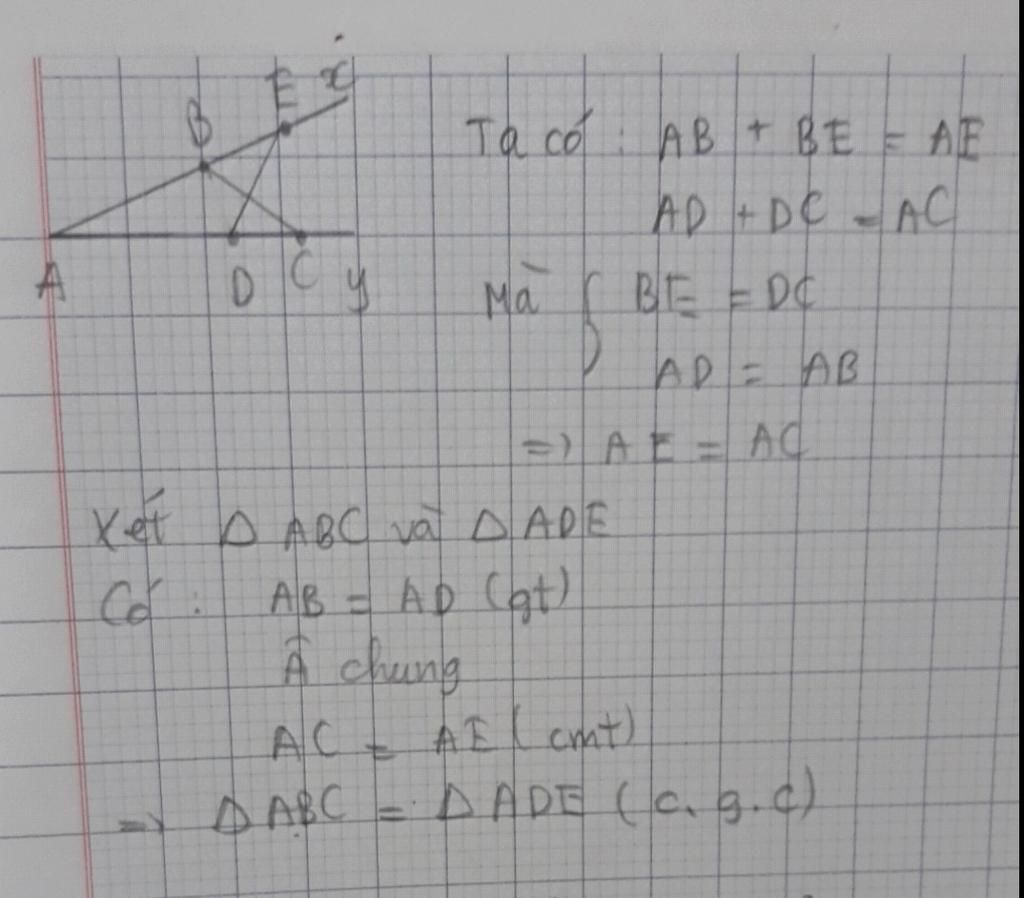 E x
B
A D C y
Ta có : AB + BE = AE
AD + DC = AC
Mà { BE = DC
AD = AB
=> AE = AC
Xét Δ ABC và Δ ADE
Có : AB = AD (gt)
Â chung
AC = AE (cmt)
=> Δ ABC = Δ ADE (c.g.c)